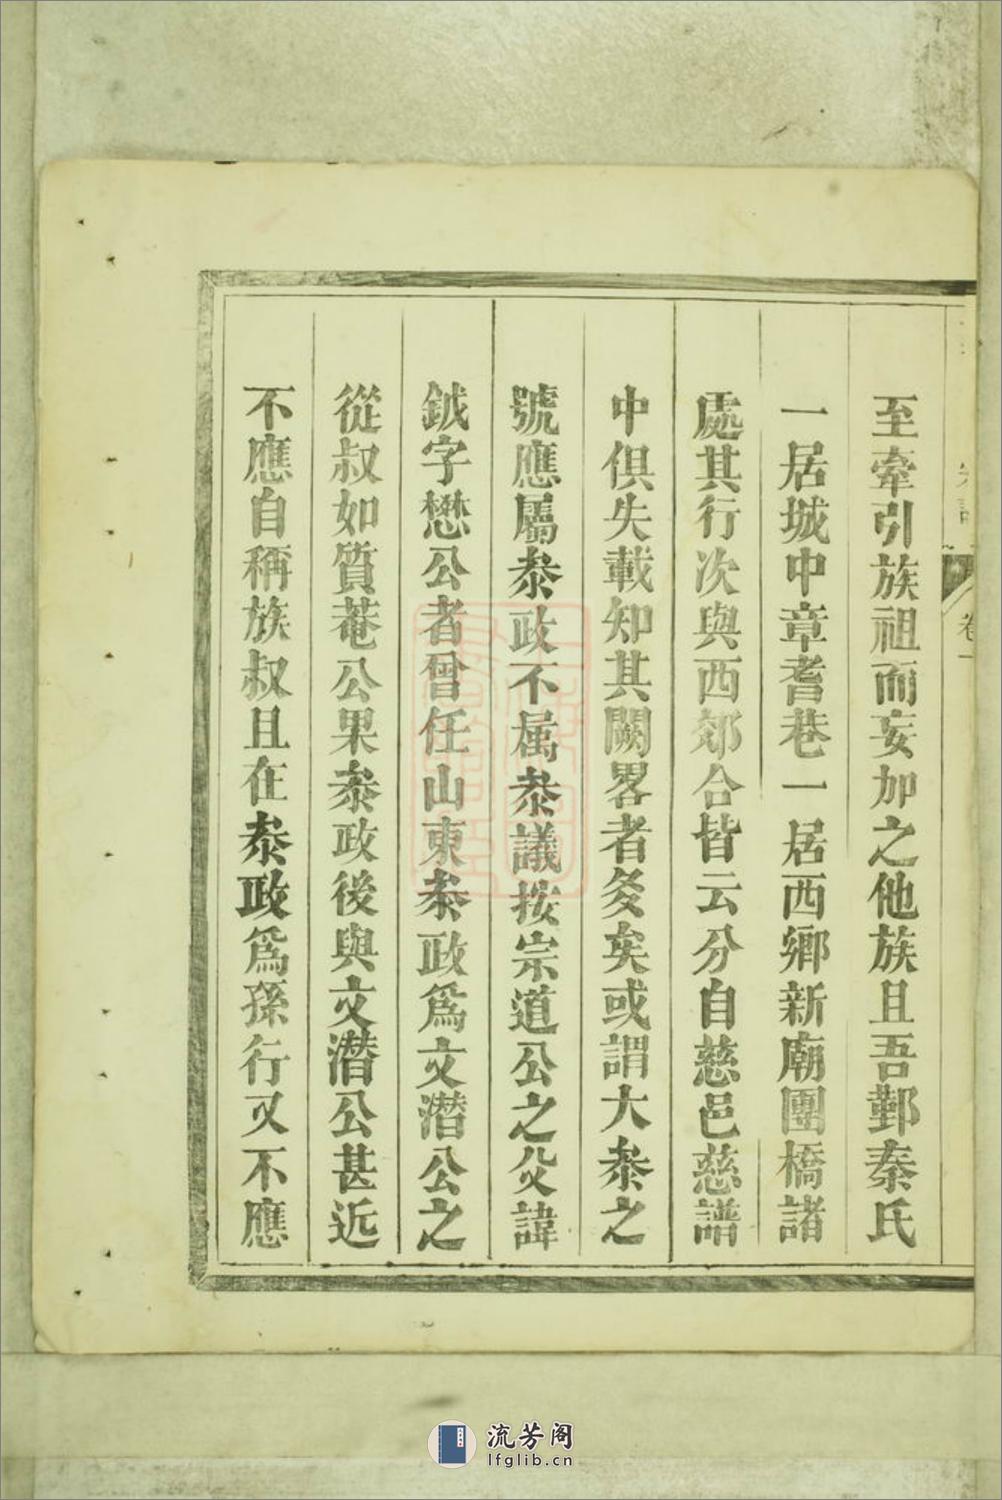 至牽引族祖而妄加之他族且吾鄞秦氏
一居城中章耆巷一居西鄉新廟團橋諸
處其行次與西郊合皆云分自慈邑慈譜
中俱失載知其闕畧者多矣或謂大叅之
號應屬叅政不属叅議按宗道公之父諱
鉞字懋公者曾任山東叅政為文潜公之
從叔如質菴公果叅政後與文潜公甚近
不應自稱族叔且在叅政爲孫行又不應
卷一
流芳阁
lfglib.cn